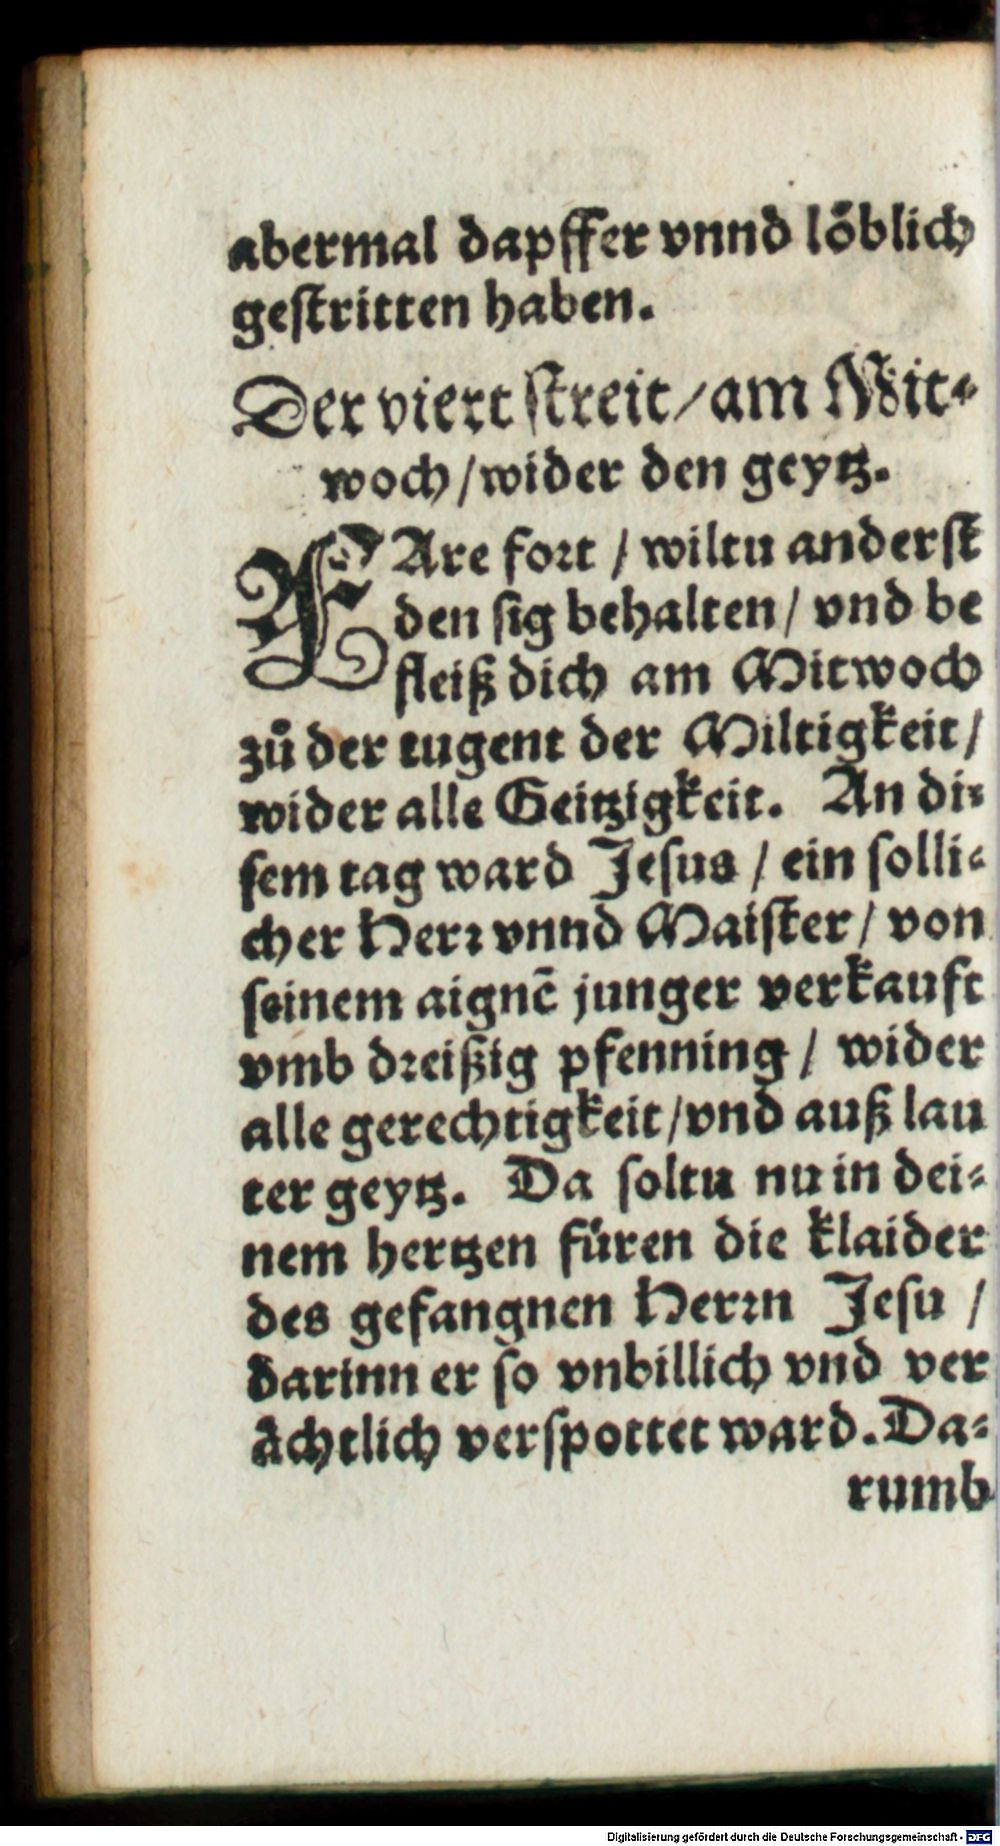 abermal dapffer vnnd löblich
gestritten haben.
Der viert streit / am Mit-
woch / wider den geytz.
FAre fort / wiltu anderst
den sig behalten / vnd be
fleiß dich am Mitwoch
zů der tugent der Miltigkeit /
wider alle Geitzigkeit. An di-
sem tag ward Jesus / ein solli-
cher Herr vnnd Maister / von
seinem aignē junger verkauft
vmb dreißig pfenning / wider
alle gerechtigkeit / vnd auß lau
ter geytz. Da soltu nu in dei-
nem hertzen füren die klaider
des gefangnen Herrn Jesu /
darinn er so vnbillich vnd ver
ächtlich verspottet ward. Da-
rumb
Digitalisierung gefördert durch die Deutsche Forschungsgemeinschaft - DFG